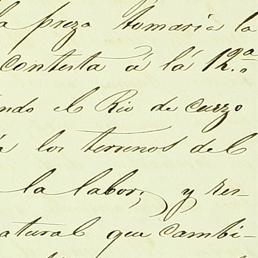 la preza tomaria la
contesta à la 12.a
endo el Rio de cuyo
a los terrenos del
la labor; y res-
natural que cambi-